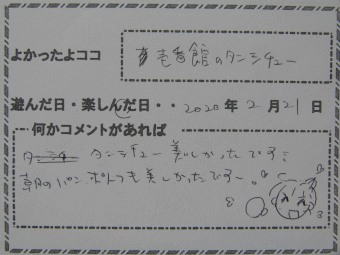 よかったよココ
壱番館のタンシチュー
遊んだ日・楽しんだ日・・2020年2月21日
何かコメントがあれば
タンシチュー美しかったです!
朝のパン ポトフも美しかったです〜。